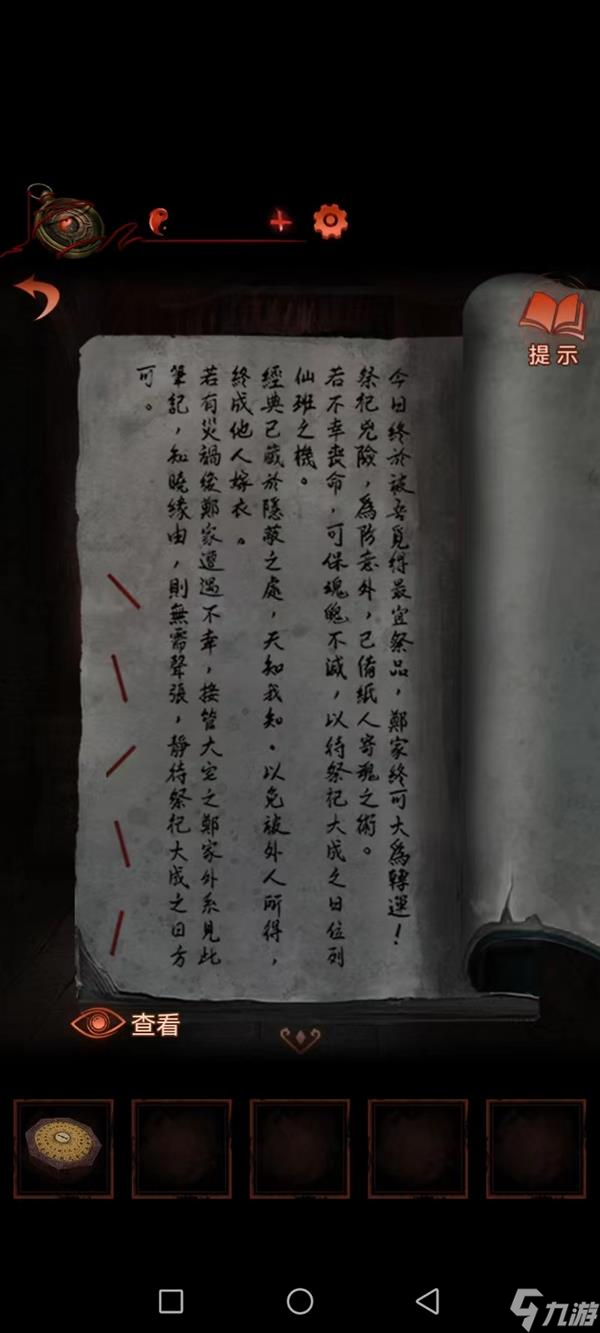 提示
今日終於被吾覓得最宜祭品，鄭家終可大為轉運！
祭祀兇險，為防意外，已備紙人寄魂之術。
若不幸喪命，可保魂魄不滅，以待祭祀大成之日位列
仙班之機。
經典已藏於隱蔽之處，天知我知。以免被外人所得，
終成他人嫁衣。
若有災禍後鄭家遭遇不幸，接管大宅之鄭家外系見此
筆記，知曉緣由，則無需聲張，靜待祭祀大成之日方
可。
查看
九游